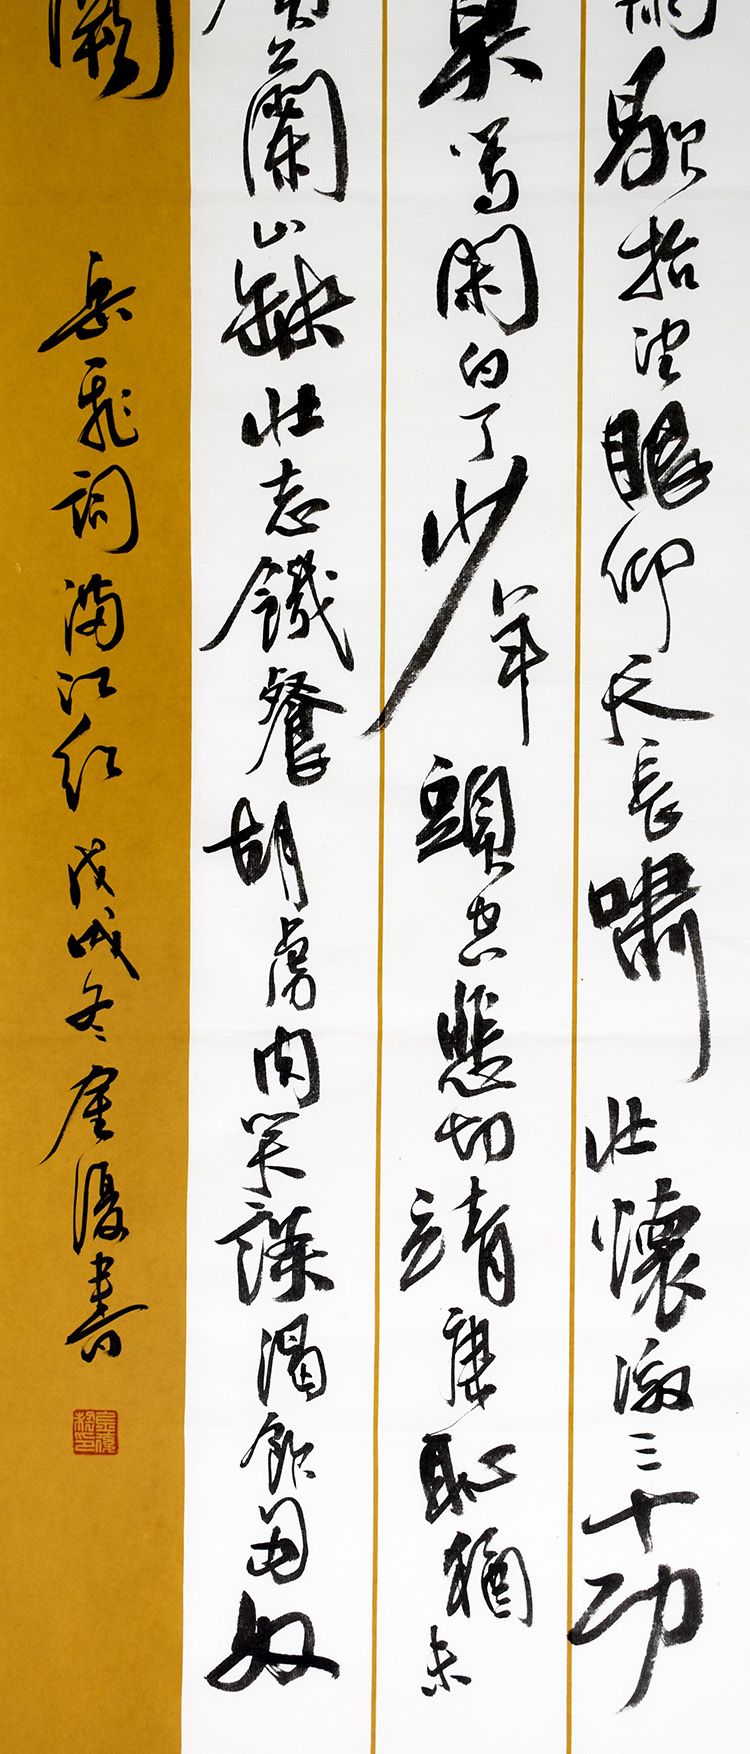 雨歇抬望眼仰天長嘯壮懷激三十功
莫等閑白了少年頭空悲切靖康恥猶未
賀蘭山缺壮志饑餐胡虜肉笑談渴飲匈奴
闕
岳飛詞滿江紅戊戌冬崔優書